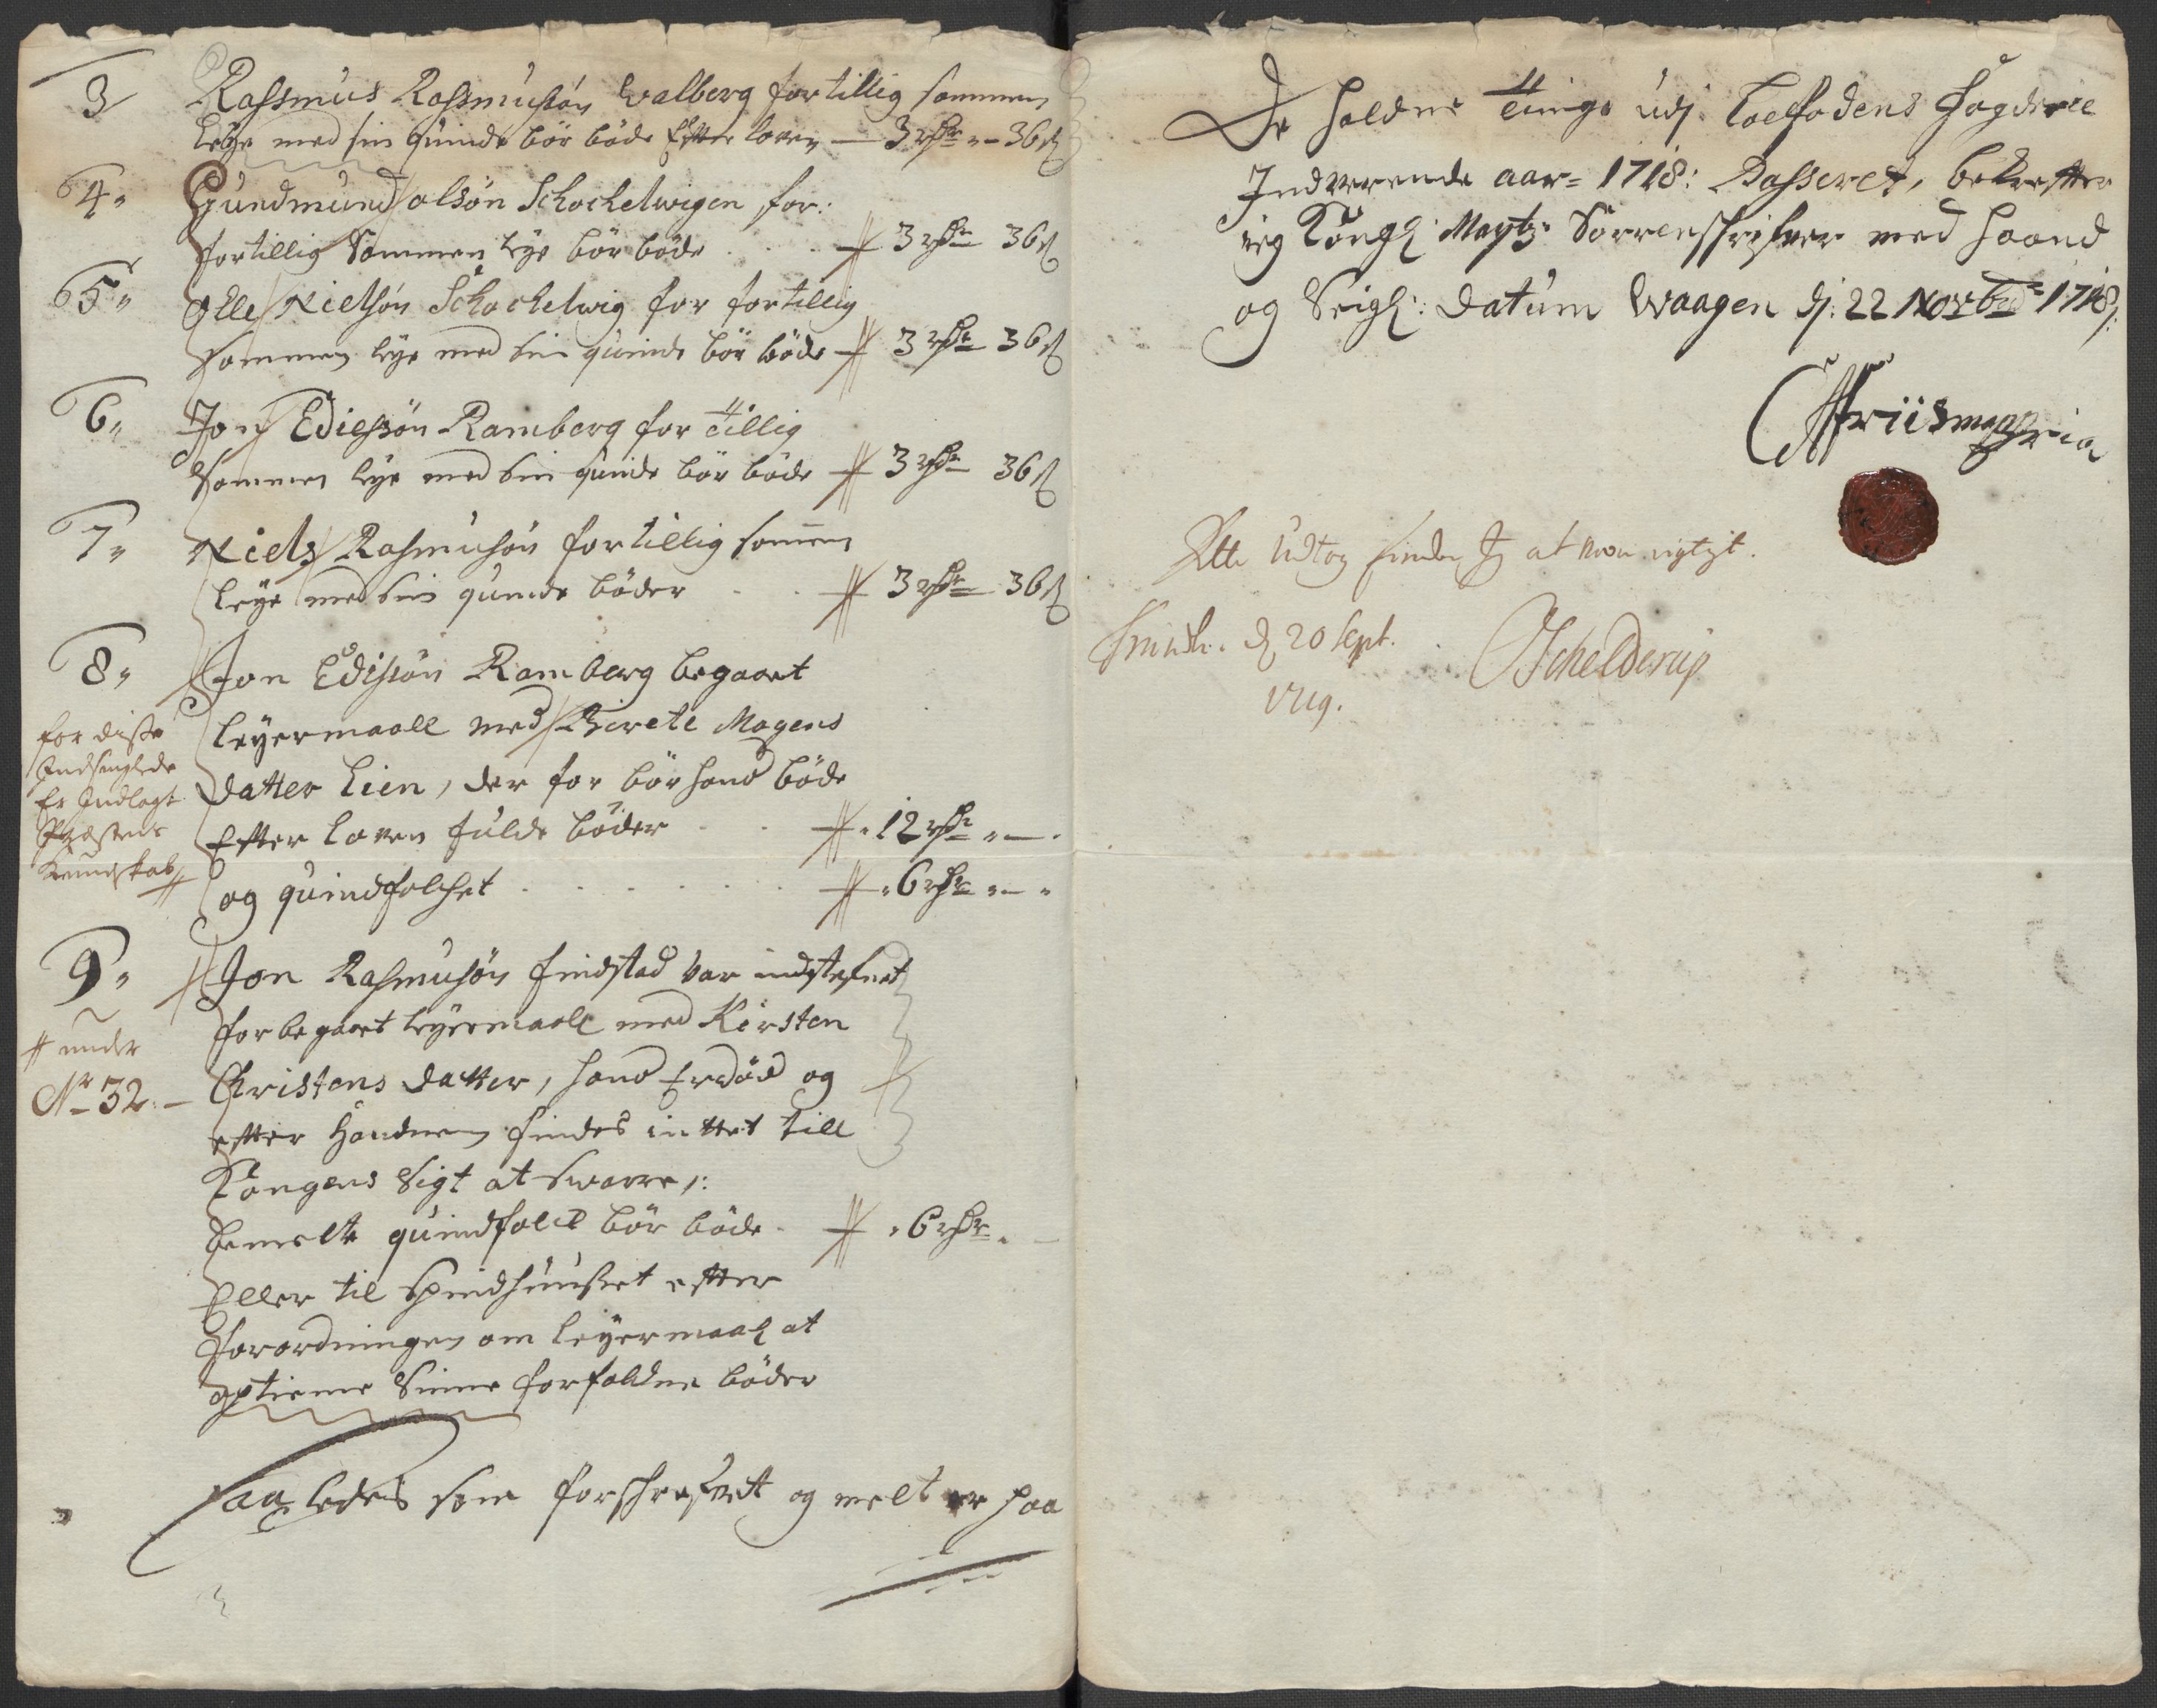 3 Rassmus Rassmusøn Walberg for tillig sammen
leÿe med sin quinde bör böde Efter loven — 3 rdr - 36 s
4 Gundmund olsøn Schochelwigen for:
for tillig Sammen leye bör böde 3 rdr 36 s
5 Olle Nielsøn Schochelwig for for tillig
Sammen leye med sin quinde bör böde 3 rdr 36 s
6 Jon Ediessøn Ramberg for tillig
Sammen leye med sin quinde bör böde 3 rdr 36 s
7 Niels Rasmusøn for tillig samen
leye med sin quinde böder 3 rdr 36 s
8 Jon Edissøn Ramberg begaaet
leyermaall med Birete Mogens
datter Lien, der for bör hand böde
Efter loven fulde böder 12 rdr
og quindfolchet 6 rdr
for disse
Indsenglede
Er Indlagt
Præstens
Kundskab
9 Jon Rasmusøn Findstad var indstefnet
for begaaet leyermaall med Kirsten
Christens datter, hand Er död og
efter Handnem findes inttet till
Kongens Sigt at swarre,:
bemelte quindfolch bör böde 6 rdr
Eller til Spindhuuset efter
forordningen om leyermaal at
optienne Sinne forfaldne böder
under
No 32
Saaledes som forschrefvet og melt er paa
De holdne tinge udj Loefodens Fogderie
Indverende aar= 1718: Passeret, bekrefter
ieg Kongl: Maytz: Sorrenschrifver med haand
og Seigl: Datum Waagen dj: 22 Novbr: 1718:
Friis mppria
Dette Udtog finder Jeg at være rigtigt.
d 20 Sept. Schelderup
1719.